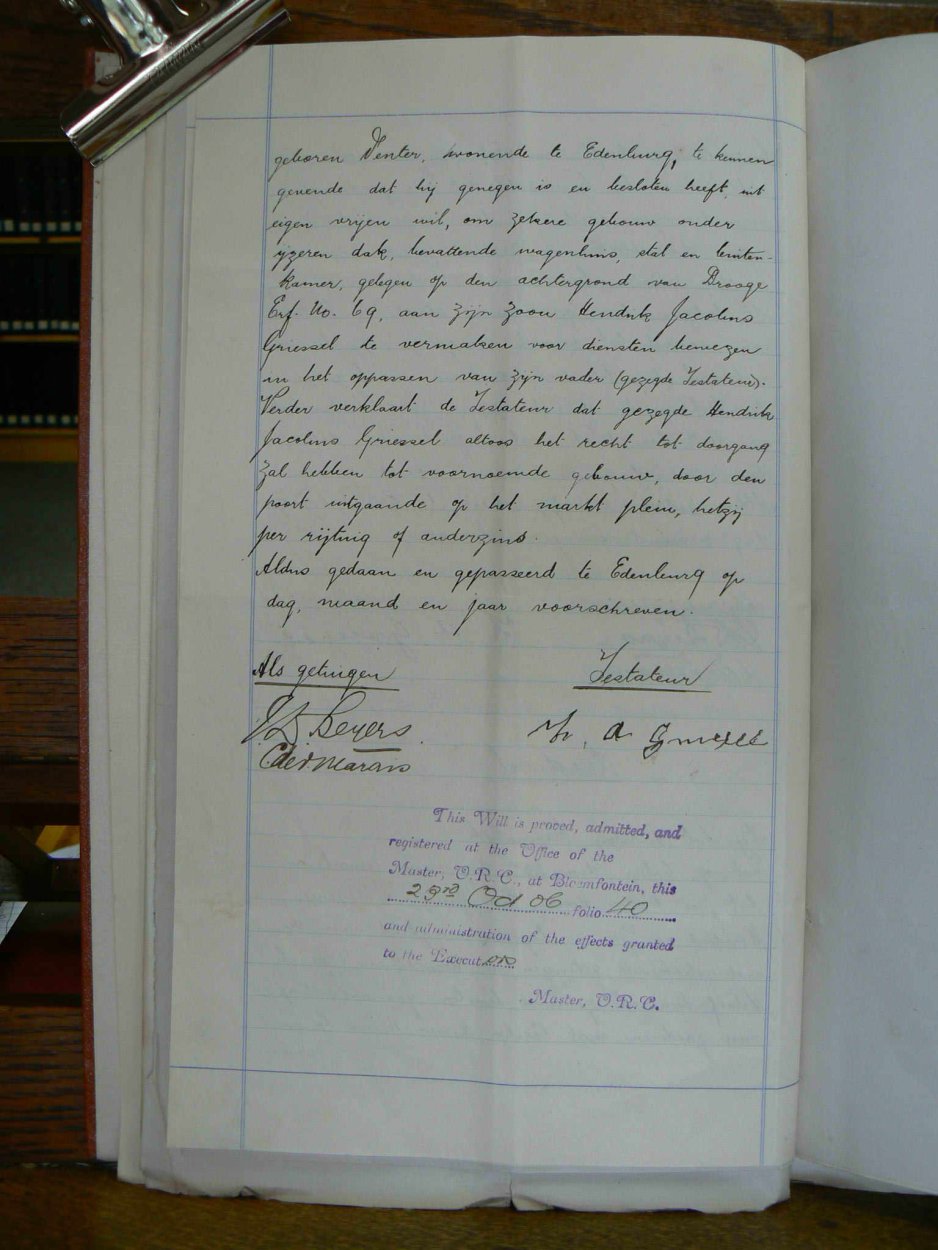 geboren Venter, wonende te Edenburg, te kennen
gevende dat hij genegen is en besloten heeft, uit
eigen vrijen wil, om zekere gebouw onder
ijzeren dak, bevattende wagenhuis, stal en buiten-
kamer, gelegen op den achtergrond van Drooge
Erf. No. 69, aan zijn zoon Hendrik Jacobus
Griessel te vermaken voor diensten bewezen
in het oppassen van zijn vader (gezegde Testateur).
Verder verklaart de Testateur dat gezegde Hendrik
Jacobus Griessel altoos het recht tot doorgang
zal hebben tot voornoemde gebouw, door den
poort uitgaande op het markt plein, hetzij
per rijtuig of anderzins.
Aldus gedaan en gepasseerd te Edenburg op
dag, maand en jaar voorschreven.
Als getuigen
Testateur
Beyers
Marais
This Will is proved, admitted, and
registered at the Office of the
Master, O.R.C., at Bloemfontein, this
29rd Oct 06 folio 40
and administration of the effects granted
to the Execut
Master, O.R.C.